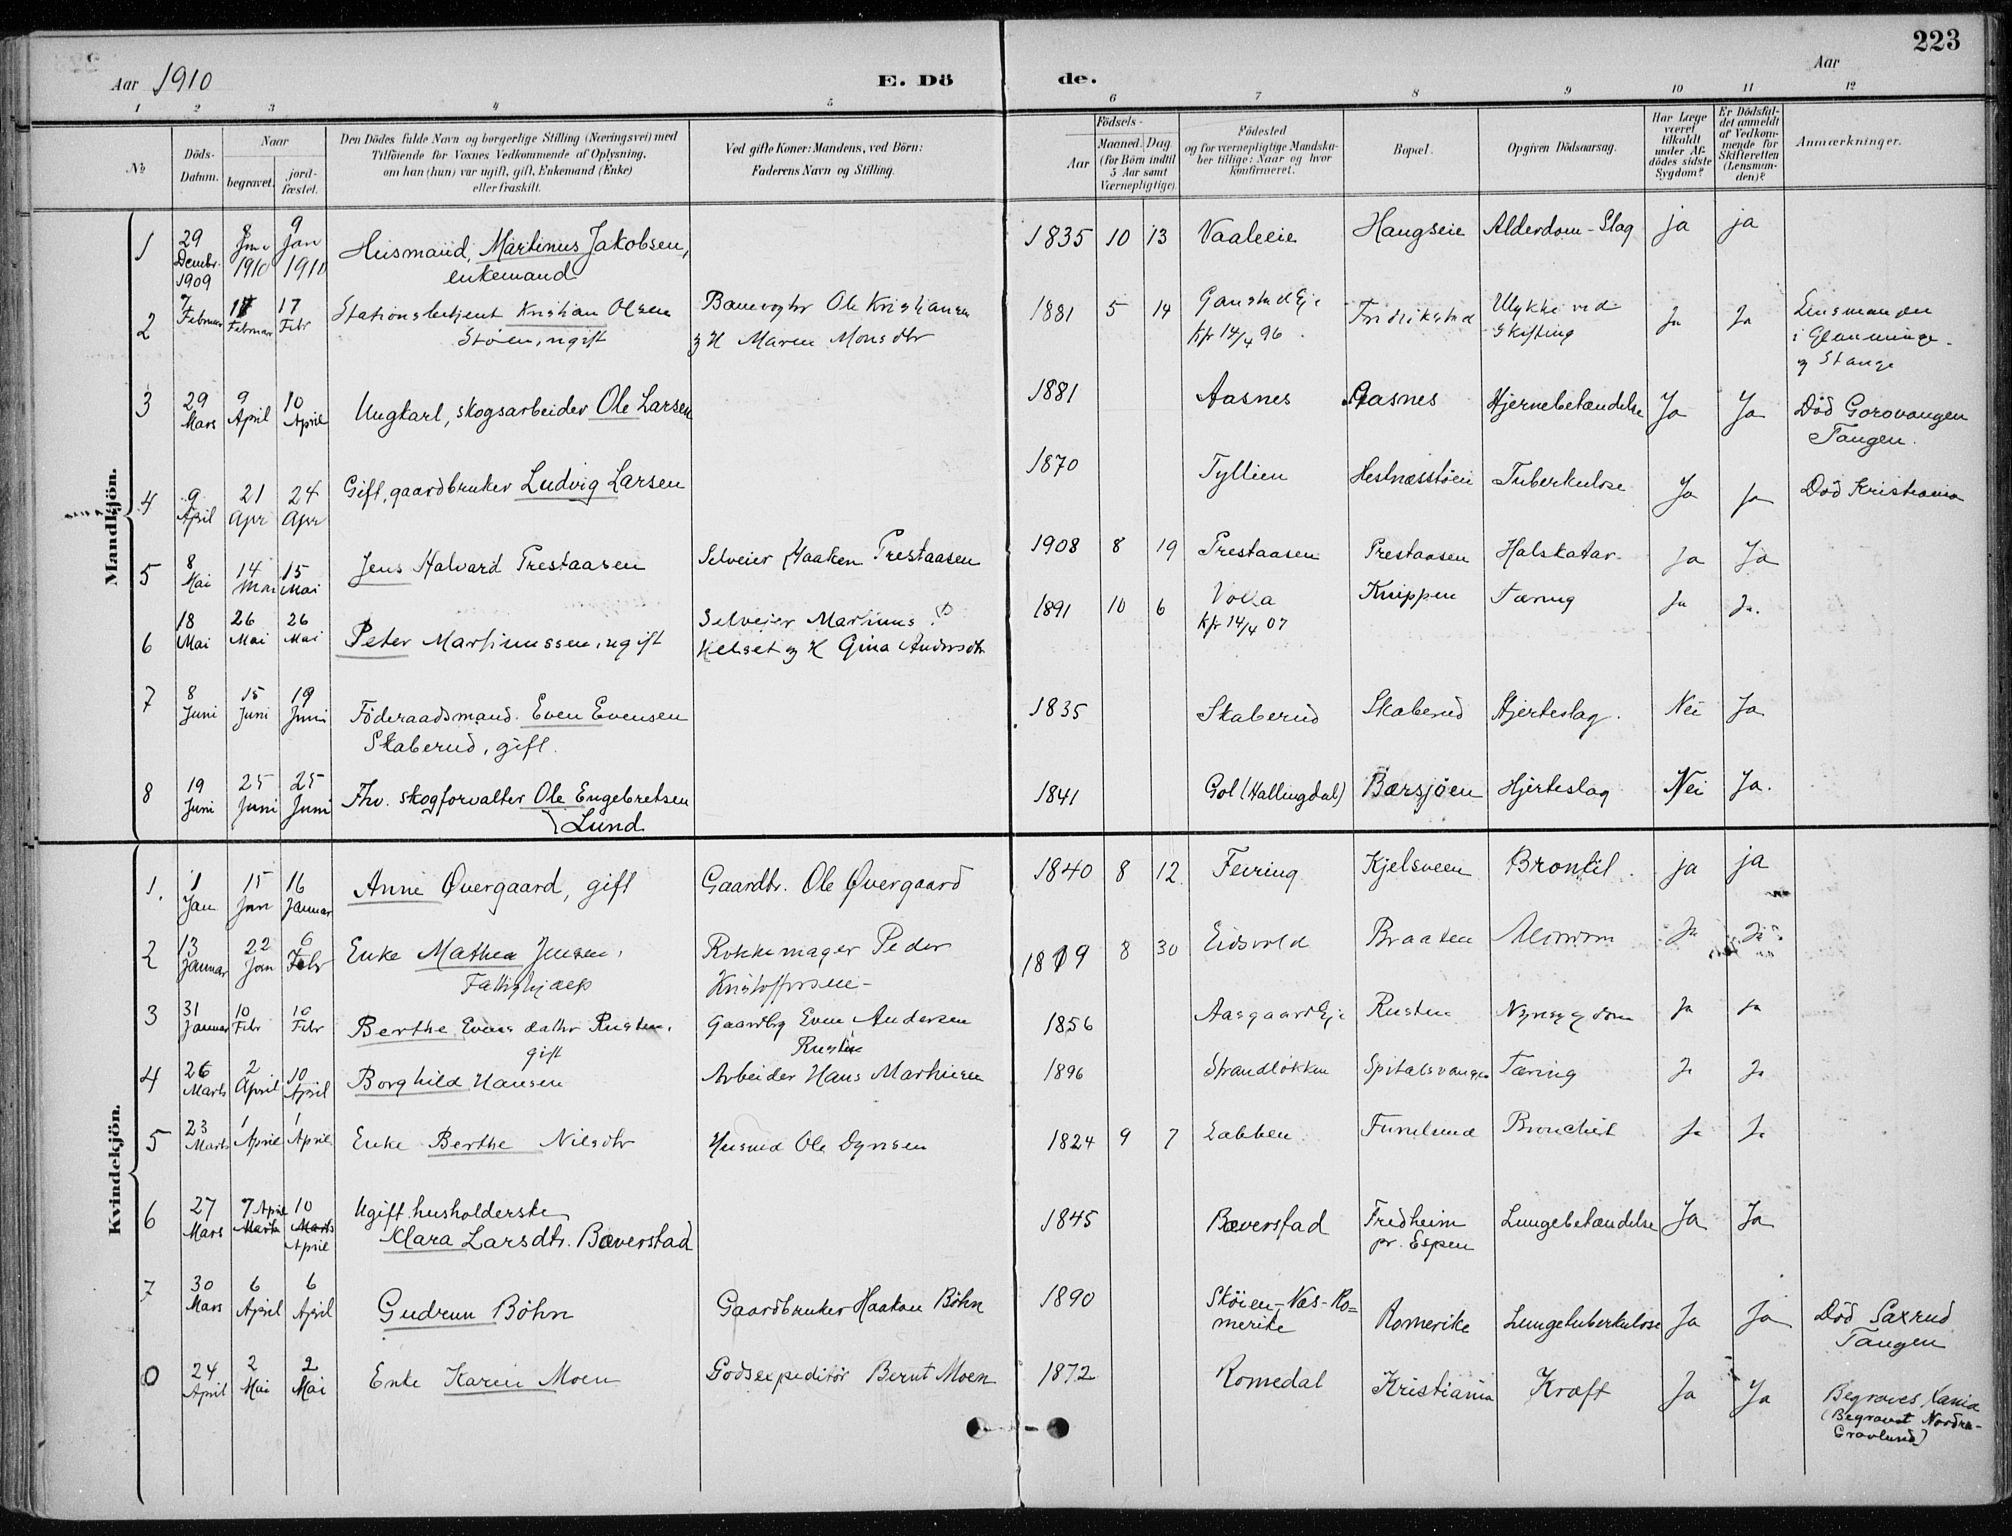 223
Aar 1910
E. Dö
de.
Aar
1 2 3 4 5 6 7 8 9 10 11 12
No
Döds-Datum.
Naar
begravet.
jord-fæstet.
Den Dödes fulde Navn og borgerlige Stilling (Næringsvei) med
Tilföiende for Voxnes Vedkommende af Oplysning,
om han (hun) var ugift, gift, Enkemand (Enke)
eller fraskilt.
Ved gifte Koner: Mandens, ved Börn:
Faderens Navn og Stilling.
Födsels-
Aar
Maaned. Dag.
(for Börn indtil
5 Aar samt
Værnepligtige)
Födested
og for værnepligtige Mandska-
ber tillige: Naar og hvor
konfirmeret.
Bopæl.
Opgiven Dödsaarsag.
Har Læge
været
tilkaldt
under Af-
dödes sidste
Sygdom?
Er Dödsfal-
det anmeldt
af Vedkom-
mende for
Skifteretten
(Lensman-
den)?
Anmærkninger.
Mandkjön.
1 29 Dembr. 1909 8 Jan 1910 9 Jan 1910 Husmand, Martinus Jakobsen, enkemand 1835 10 13 Vaaleeie Haugseie Alderdom - Slag ja ja
2 7 Februar 17 Februar 17 Febr Stationsbetjent Kristian Olsen Støen, ugift Banevogter Ole Kristiansen og H Maren Monsdtr 1881 5 14 Ganstad Eje kfr 14/4 96. Fredrikstad Ulykke ved Skifting Ja Ja Lensmanden i Glemminge og Stange
3 29 Mars 9 April 10 April Ungkarl, skogsarbeider Ole Larsen 1881 Aasnes Aasnes Hjernebetændelse Ja Ja Död Gorovangen Tangen.
4 9 April 21 Apr 24 Apr Gift, gaardbruker Ludvig Larsen 1870 Tyllien Hestnæsstöen Tuberkulose Ja Ja Död Kristiania
5 8 Mai 14 Mai 15 Mai Jens Halvard Prestaasen Selveier Haaken Prestaasen 1908 8 19 Prestaasen Prestaasen Halskatar Ja Ja
6 18 Mai 26 Mai 26 Mai Peter Martinussen, ugift Selveier Martinus Kelset og H Gina Andersdtr 1891 10 6 Volla kfr 14/4 07 Knippen Tæring Ja Ja.
7 8 Juni 15 Juni 19 Juni Föderaadsmand. Even Evensen Skaberud, gift. 1835 Skaberud Skaberud Hjerteslag. Nei Ja
8 19 Juni 25 Juni 25 Juni Fhv. skogforvalter Ole Engebretsen Lund 1841 Gol (Hallingdal) Bærsjöen Hjerteslag Nei Ja.
Kvindekjön.
1. 1 Jan 15 Jan 16 Januar Anne Øvergaard, gift Gaardbr. Ole Øvergaard 1840 8 12 Feiring Kjelsveen Brontil. ja ja
2 13 Januar 22 Jan 6 Febr Enke Mathea Jensen, Fattighjælp Rokkemager Peder Kristoffersen 1819 8 30 Eidsvold Braaten Ja Ja
3 31 Januar 10 Febr 10 Febr Berthe Evensdatter Rusten, gift Gaardbrg Even Andersen Rusten 1856 Aasgaard Eje Rusten Nyresygdom Ja Ja
4 26 Marts 2 April 10 April Borghild Hansen Arbeider Hans Mathisen 1896 Strandløkken Spitalsvangen Tæring Ja Ja
5 23 Marts 1 April 1 April Enke Berthe Nilsdtr Husmd Ole Dyresen 1824 9 7 Labben Furulund Bronchit Ja Ja
6 27 Mars 7 April Marts 10 Marts April Ugift husholderske Klara Larsdtr. Bæverstad 1845 Bæverstad Fredheim pr. Espen Lungebetændelse Ja Ja
7 30 Mars 6 April 6 April Gudrun Böhn Gaardbruker Haakon Böhn 1890 Sköien-Næs-Romerike Romerike Lungetuberkulose Ja Ja Död Saxrud Tangen
0 24 April 2 Mai 2 Mai Enke Karen Moen Godsexpeditör Bernt Moen 1872 Romedal Kristiania Kræft Ja Ja Begraves Xania (Begravet Nordre-Gravlund)